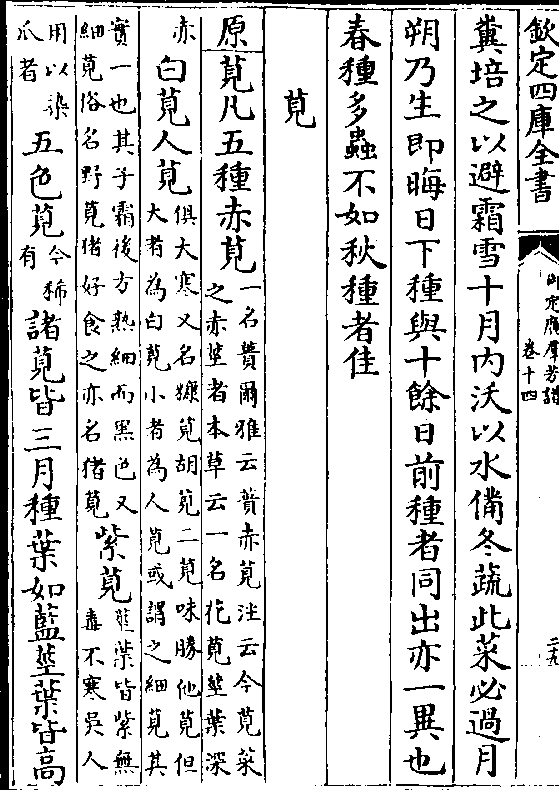 欽定四庫全書
御定廣羣芳譜
卷十四
二九
糞培之以避霜雪十月内沃以水備冬蔬此菜必過月
朔乃生即晦日下種與十餘日前種者同出亦一異也
春種多蟲不如秋種者佳
莧
原莧凡五種赤莧
一名蕡爾雅云蕡赤莧注云今莧菜
之赤莖者本草云一名花莧莖葉深
赤
白莧人莧
俱大寒又名糠莧胡莧二莧味勝他莧但
大者為白莧小者為人莧或謂之細莧其
實一也其子霜後方熟細而黑色又
細莧俗名野莧猪好食之亦名猪莧
紫莧
莖葉皆紫無
毒不寒吳人
用以染
爪者
五色莧
今稀
有
諸莧皆三月種葉如藍莖葉皆高